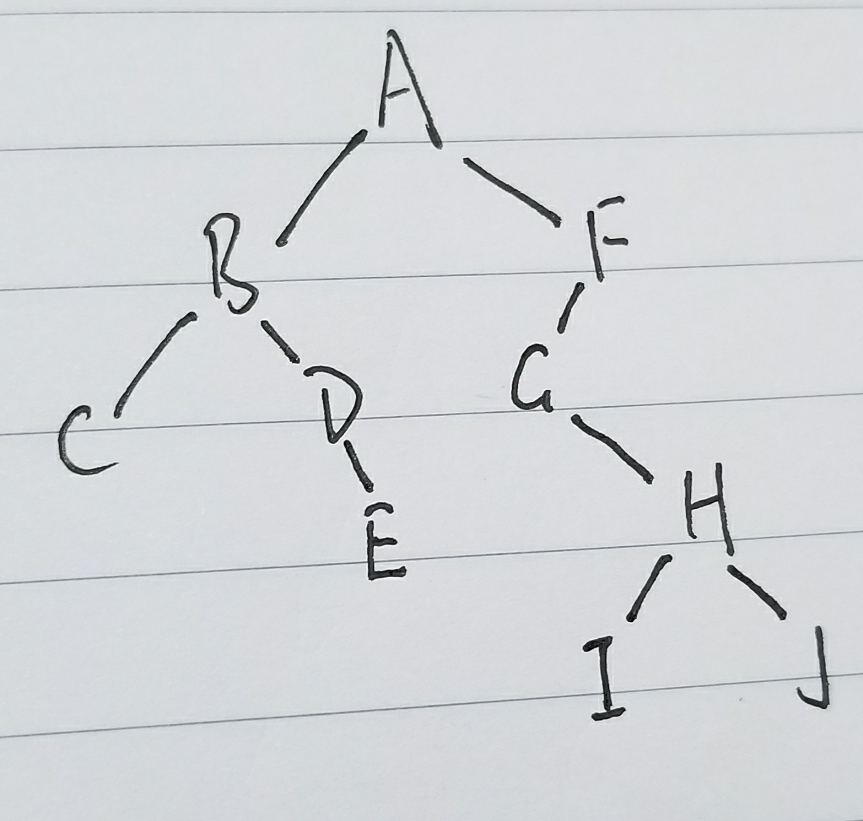 A
B F
C D G
E H
I J